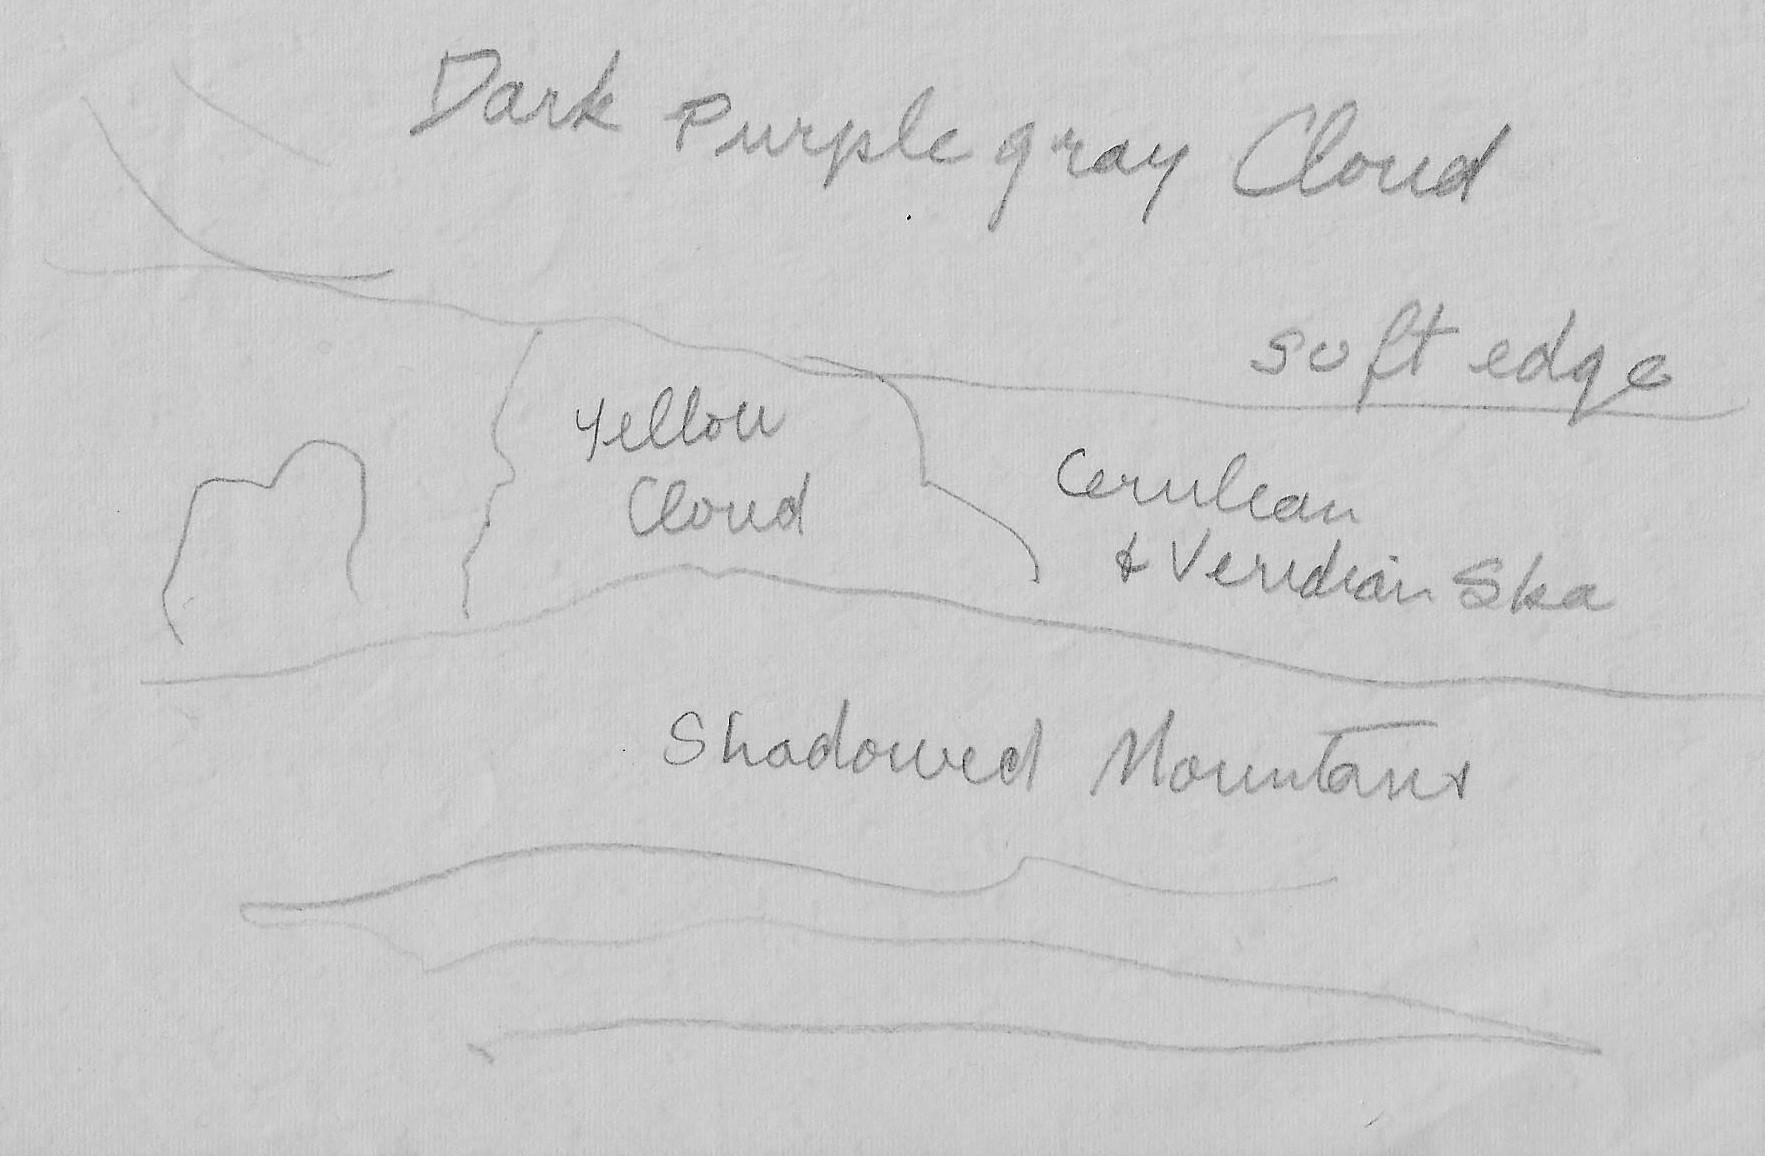 Dark Purple gray Cloud
soft edge
Yellow
Cloud
Cerulean
& Veridian Ska
Shadowed Mountains